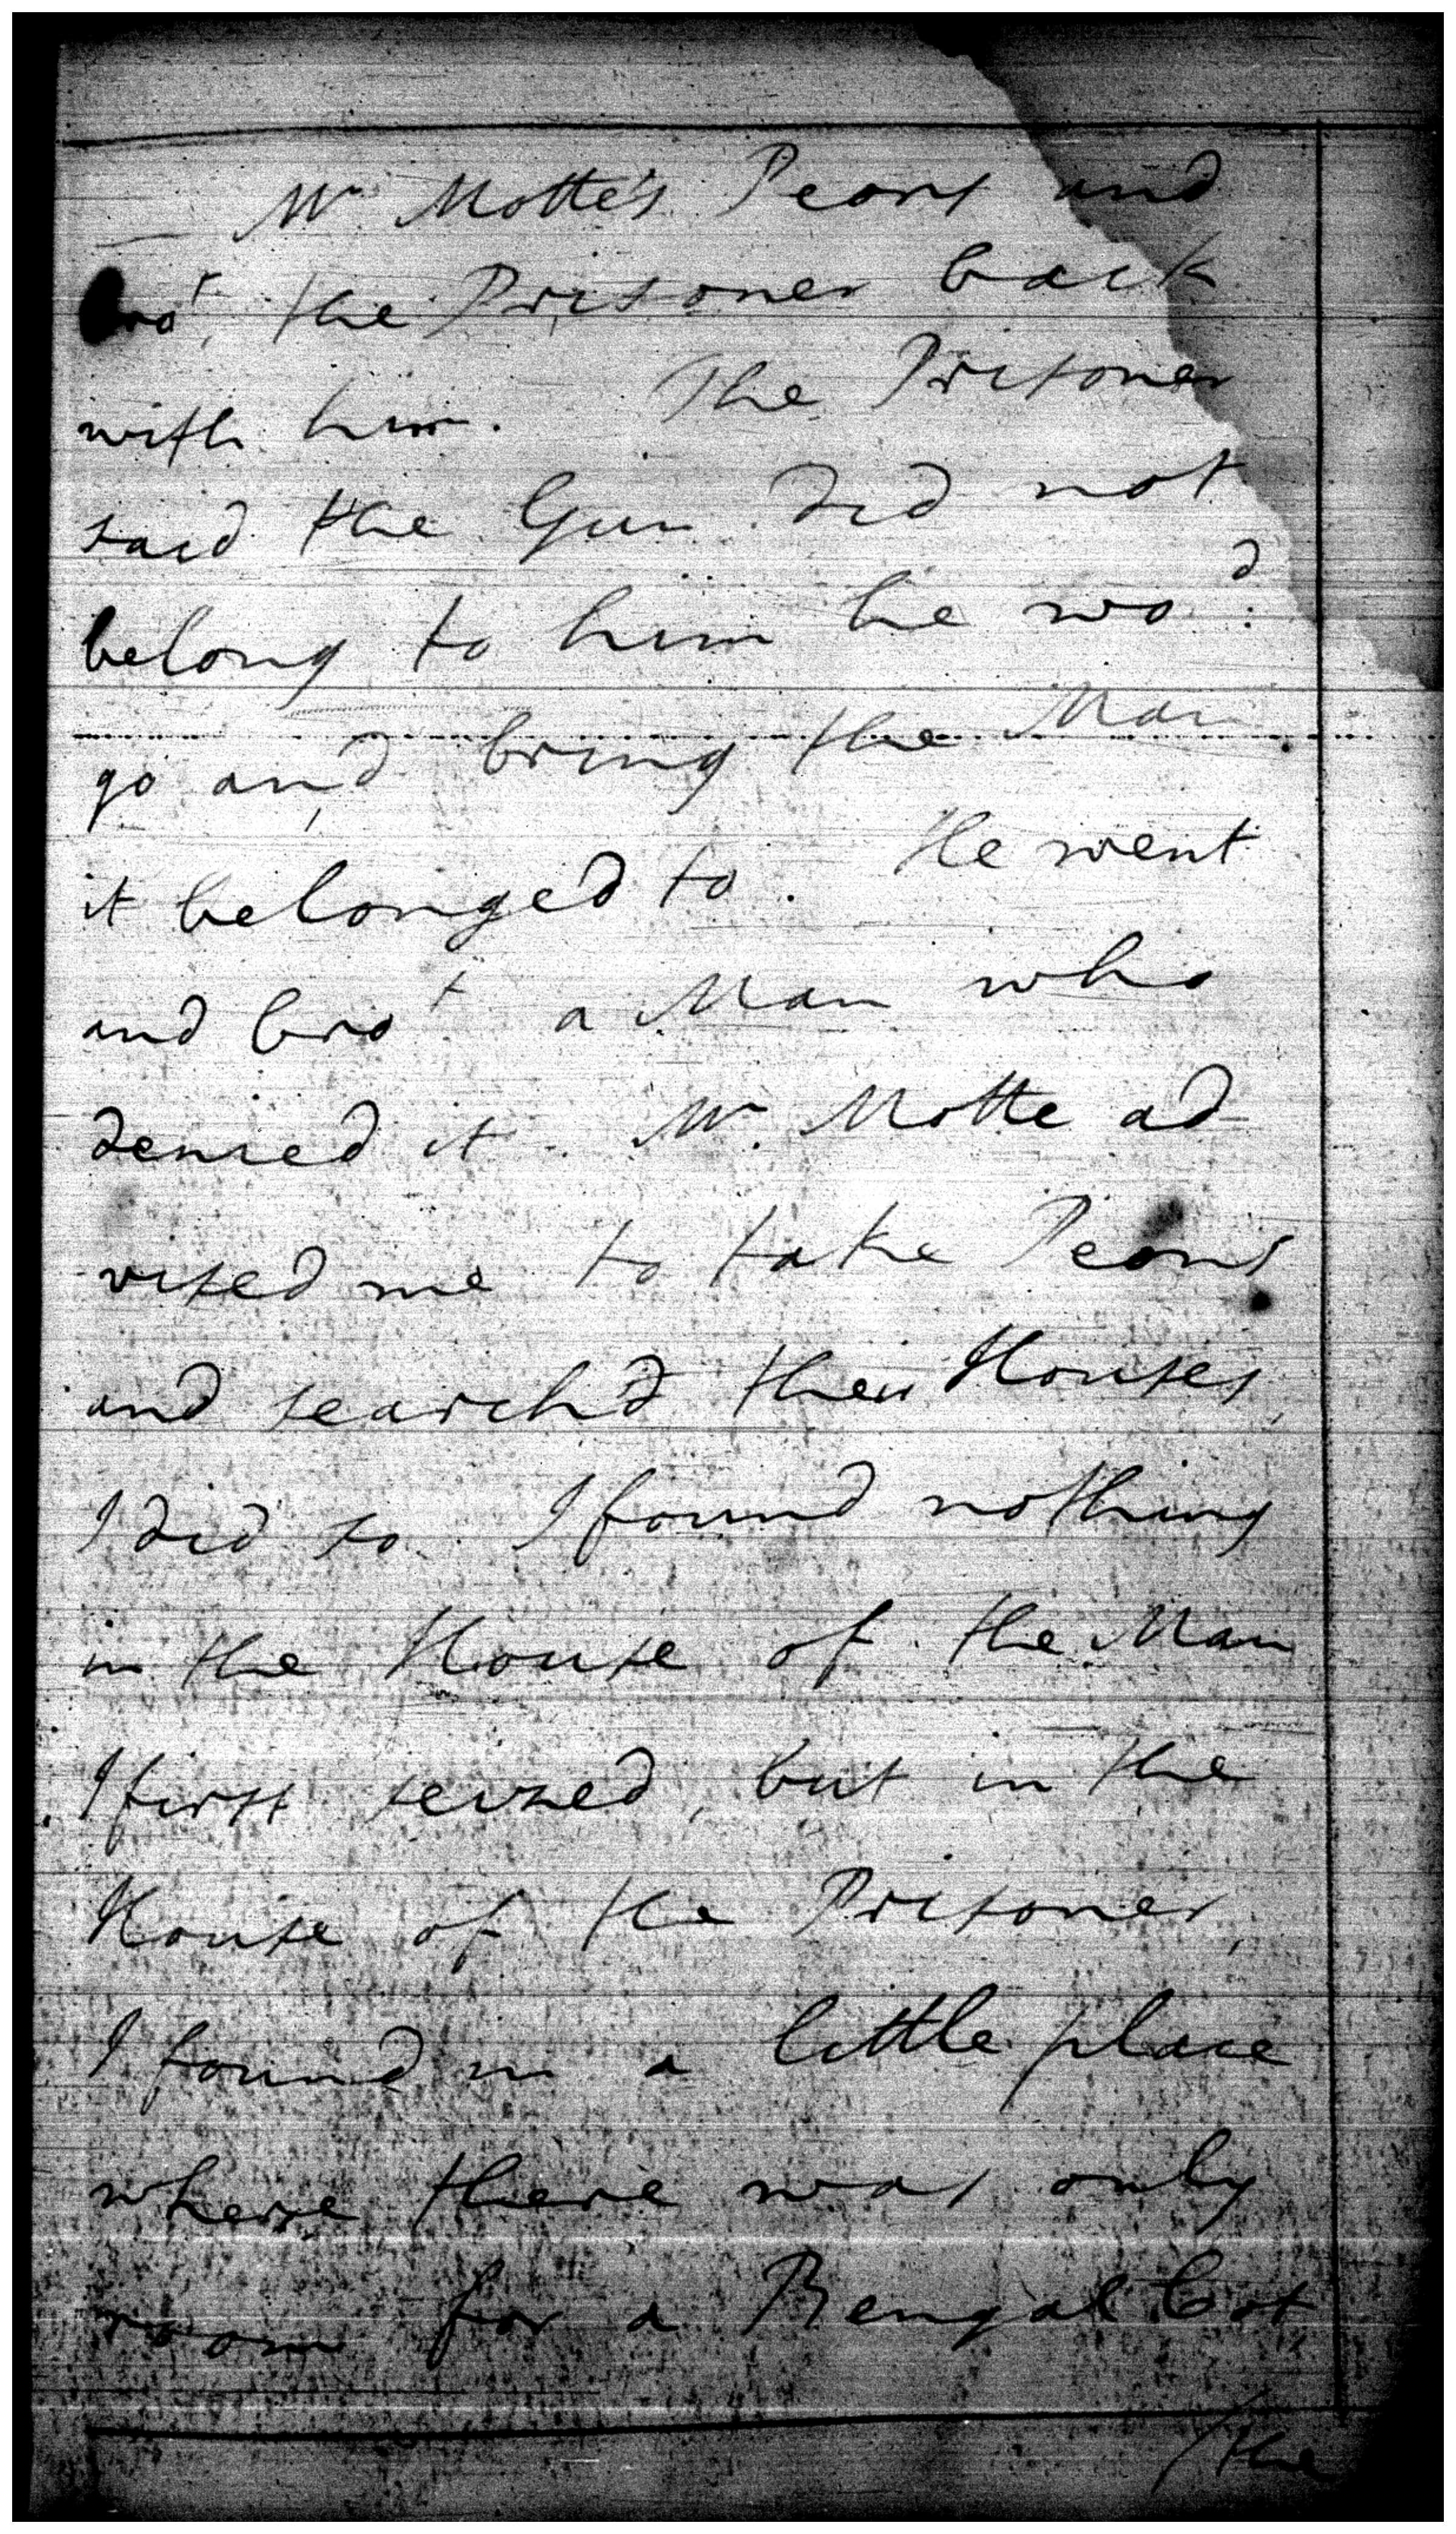 Mr Motte's Peons and
bro^t, the Prisoner back
with him. The Prisoner
said the Gun did not
belong to him he wo^d.
go and bring the Man
it belonged to. He went
and bro^t a Man who
denied it. Mr. Motte ad
vised me to take Peons
and search'd their Houses,
I did so. I found nothing
in the House of the Man
I first seized, but in the
House of the Prisoner,
I found in a little place
where there was only
room for a Bengal Cot
/the